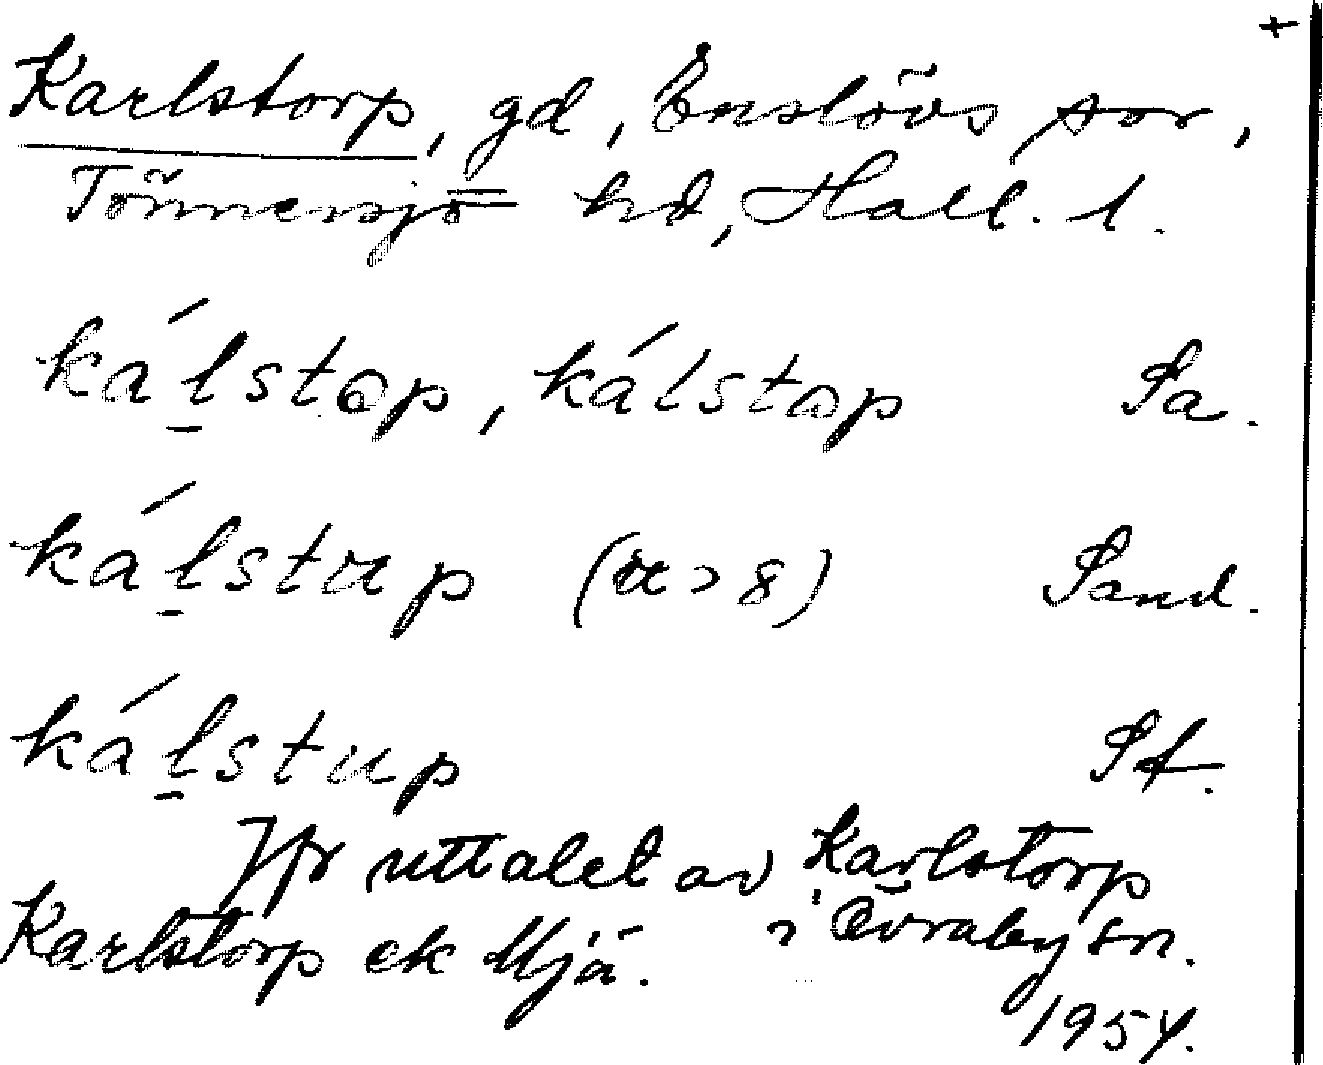 +
Karlstorp, gd, Enslövs sn,
Tönnersjö hd, Hall. l.
ká̱lstɷp, kálstɷp Sa.
ká̱lstup (u > 8) Sand.
ká̱lstup Sf.
Jfr uttalet av Karlstorp
i Övraby sn.
Karlstorp ek Mjä.
1954.